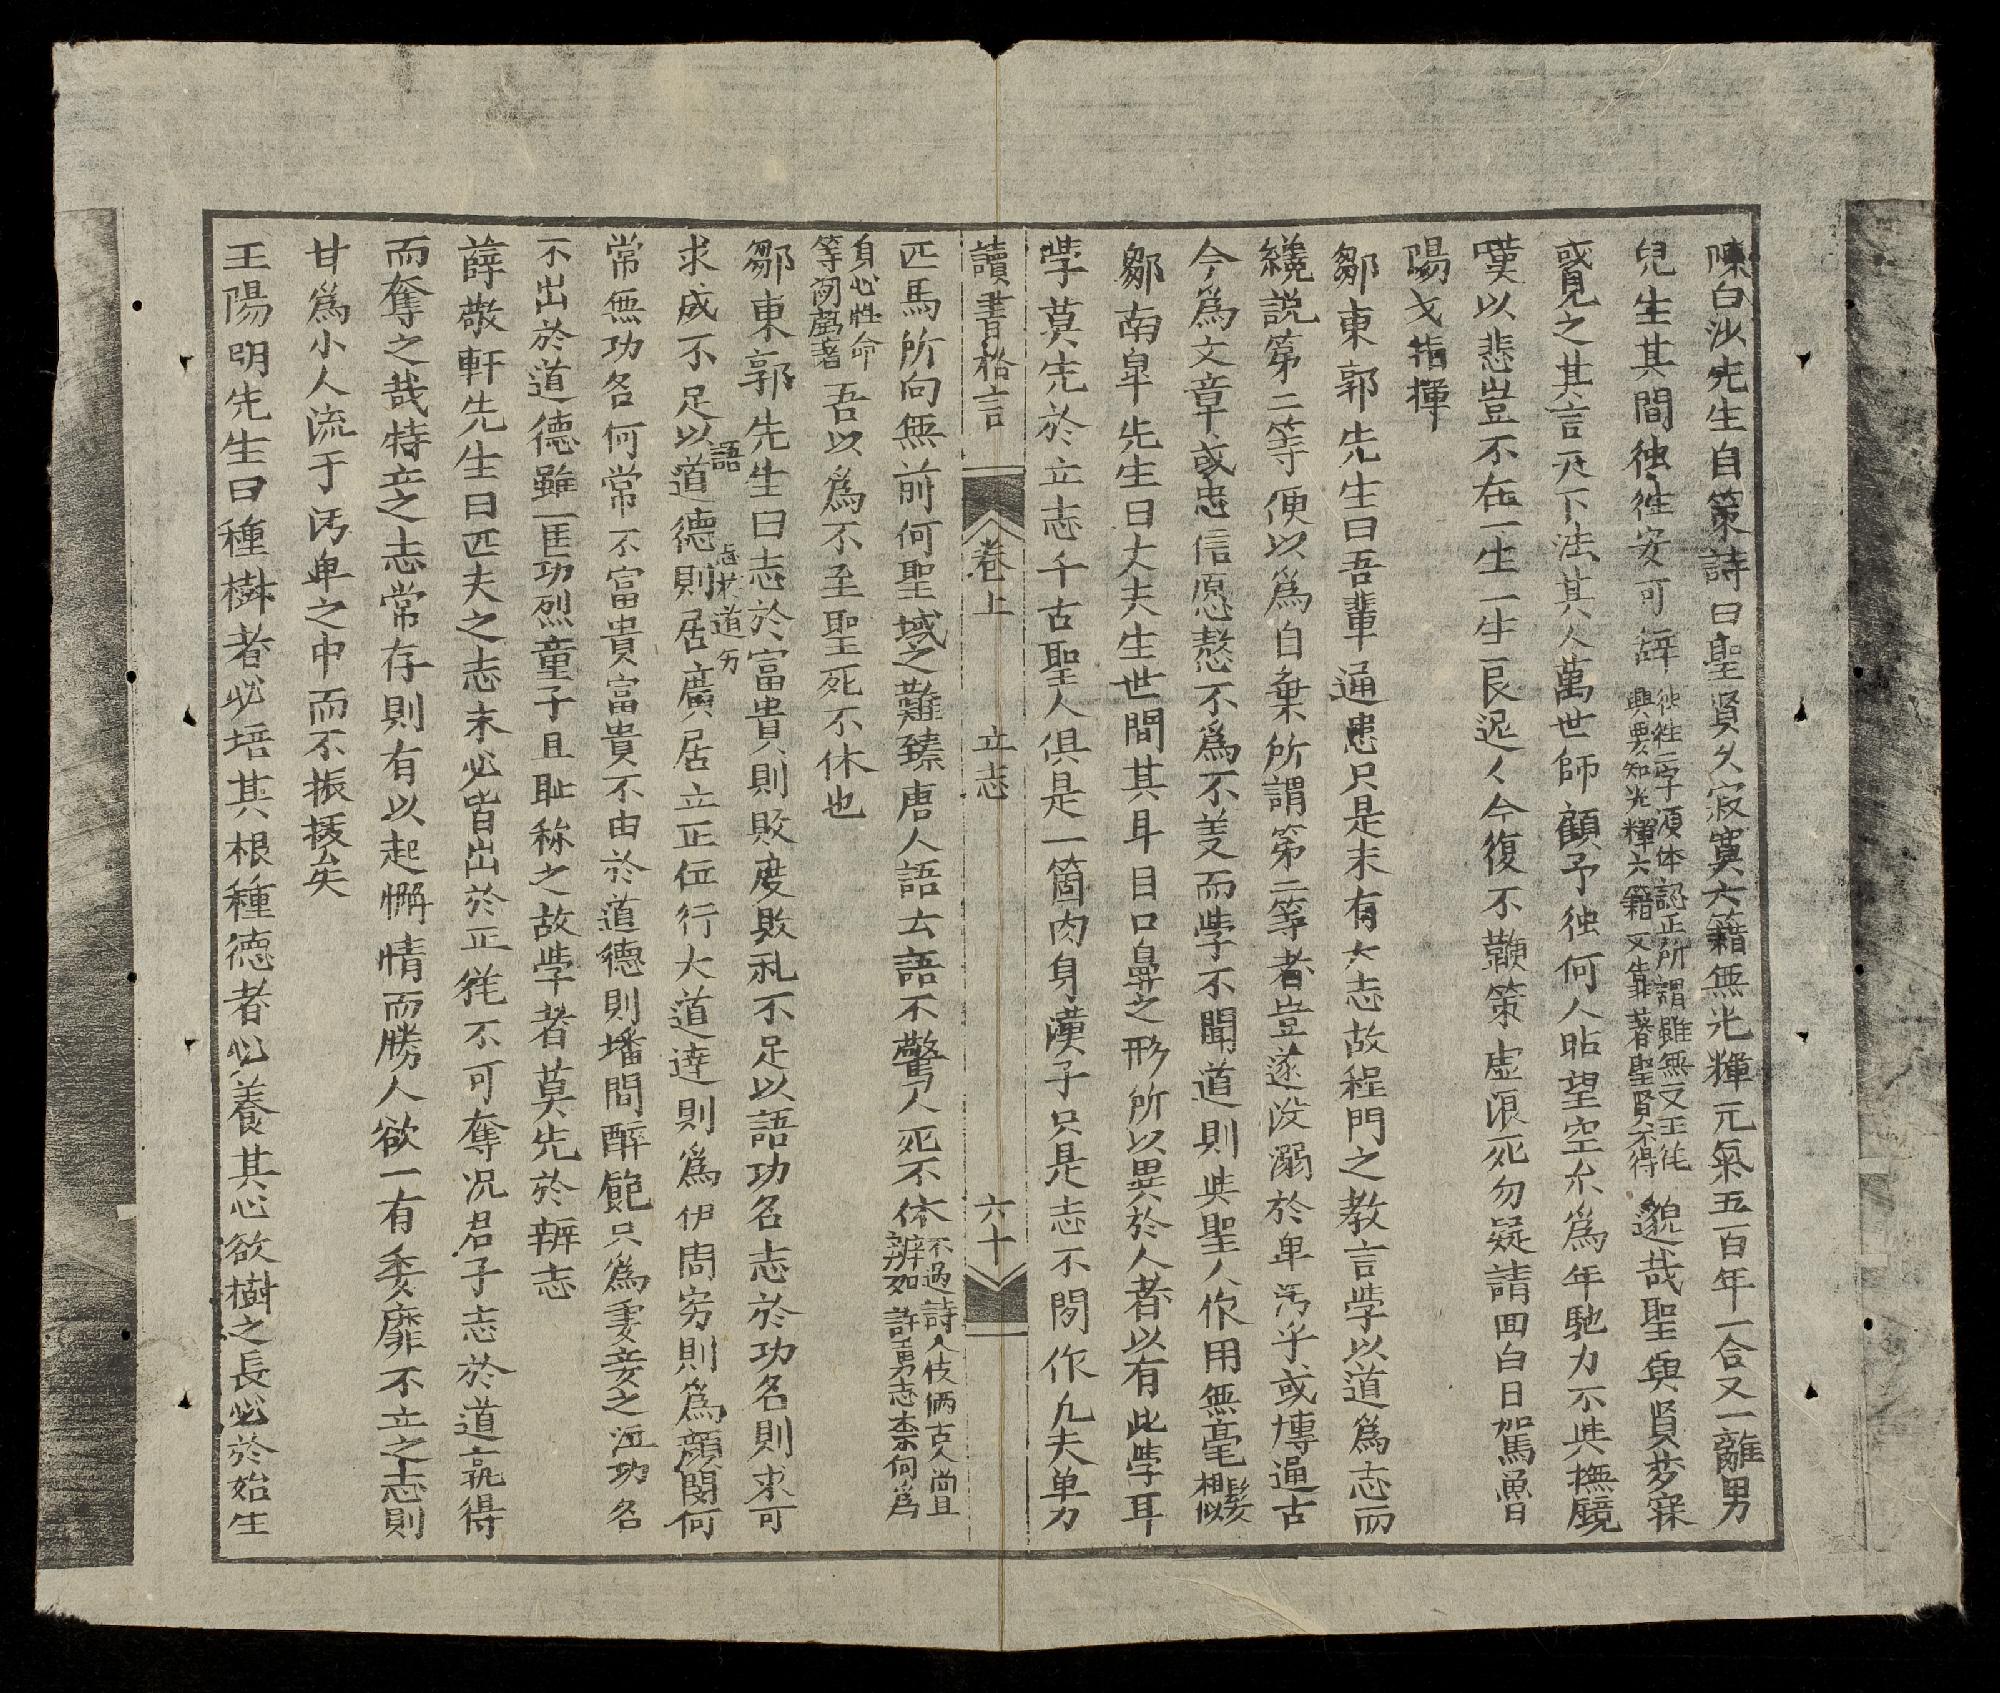 陳白沙先生自策詩曰聖賢久寂寞六籍無光輝元氣五百年一合又一離男
兒生其間独徃安可辞
独徃二字須体認正所謂雖無文王猶
興要知光輝六籍又靠著聖賢不得
邈哉聖與賢梦寐
覔見之其言天下法其人萬世師顧予独何人贴望空尔為年馳力不與撫鏡
嘆以悲豈不在一生一生一艮迟人今復不鞭策虛浪死勿疑請回白日駕魯
陽戈指揮
鄒東郭先生曰吾輩通患只是未有大志故程門之教言學以道為志而
纔説第二等便以為自棄所謂第二等者豈遂没溺於卑污乎或博逼古
今為文章或忠信愿愨不為不羙而學不聞道則與聖人作用無毫
髮
相似
鄒南皐先生曰大夫生世間其耳目口鼻之形所以異於人者以有此學耳
學莫先於立志千古聖人俱是一箇肉身漢子只是志不閒作凢夫单刀
讀書格言 卷上 立志 六十
匹馬所向無前何聖域之難臻唐人語云語不驚人死不休
不過詩人伎俩古人尚且
辨如許勇志柰何為
身心性命
等閒蔿著
吾以為不至聖死不休也
鄒東郭先生曰志於富貴則敗度敗礼不足以語功名志於功名則求可
語 志扵道匆
求成不足以道德則居廣居立正位行大道逹則為伊周穷則為顔閔何
常無功名何常不富貴富貴不由於道德則墦間醉飽只為妻妾之泣功名
不出於道德雖一匡功烈童子且耻称之故學者莫先於辨志
薛敬軒先生曰匹夫之志未必皆出於正猶不可奪况君子志於道孰得
而奪之哉特立之志常存則有以起懶情而勝人欲一有委靡不立之志則
甘為小人流于污卑之中而不振拔矣
王陽明先生曰種樹者必培其根種德者必養其心欲樹之長必於始生